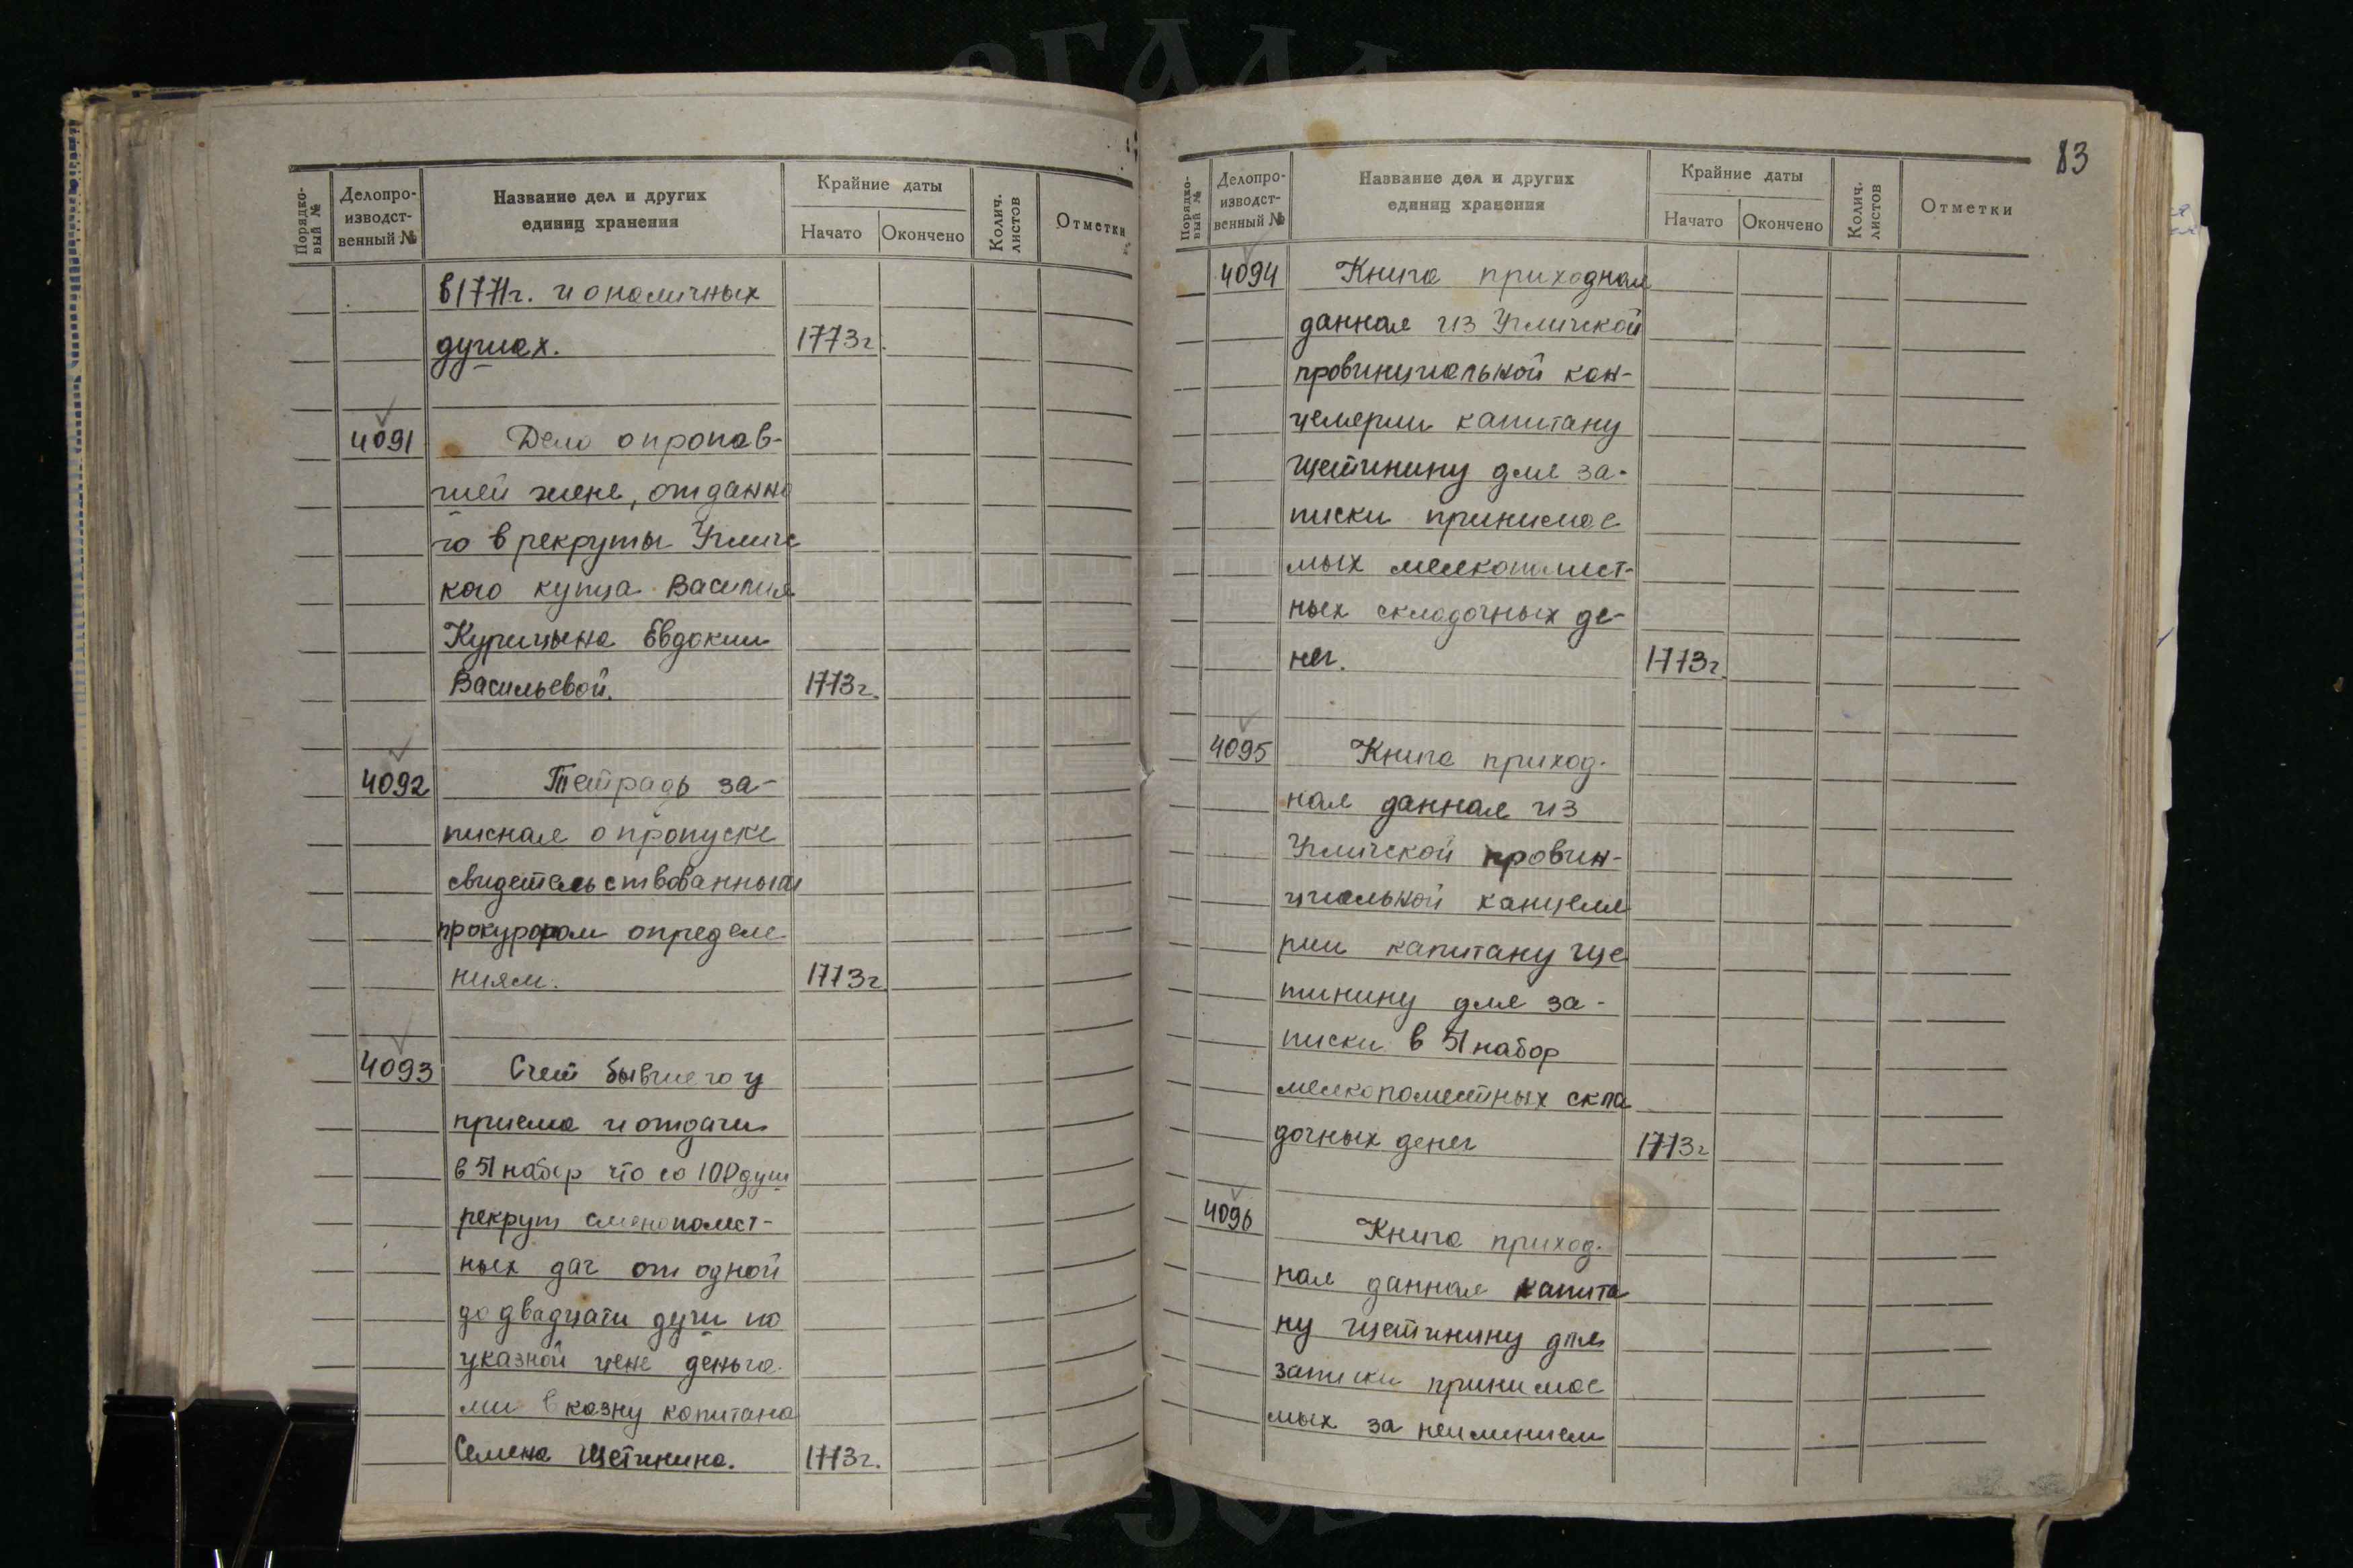 Порядковый №
Делопроизводственный №
Название дел и других единиц хранения
Крайние даты
Начато
Окончено
Колич. листов
Отметки
в 1771г. и оналичных
душах. 1773г.
4091 Дело о пропав-
шей жене, отданно
го в рекруты Угличс
кого купца Василия
Курицына Евдокии
Васильевой. 1773г.
4092 Тетрадь за-
писная о пропуске
свидетельствованным
прокурором определе
ниям. 1773г
4093 Счет бывшего у
приема и отдачи
в 51 набор что со 100 душ
рекрут
ных дач от одной
до двадцати души по
указной цене деньга-
ми в казну капитана
Семена Щетинина. 1773г.
83
Порядковый №
Делопроизводственный №
Название дел и других единиц хранения
Крайние даты
Начато
Окончено
Колич. листов
Отметки
4094 Книга приходная
данная из Угличской
провинциальной кан-
целярии капитану
Щетинину для за-
писки принимае
мых мелкопомест-
ных складочных де-
нег. 1773г.
4095 Книга приход-
ная данная из
Угличской провин-
циальной канцеля
рии капитану Ще
тинину для за-
писки в 51 набор
мелкопоместных скла
дочных денег 1773г
4096 Книга приход-
ная данная капита
ну Щетинину для
записки принимае
мых за неимением